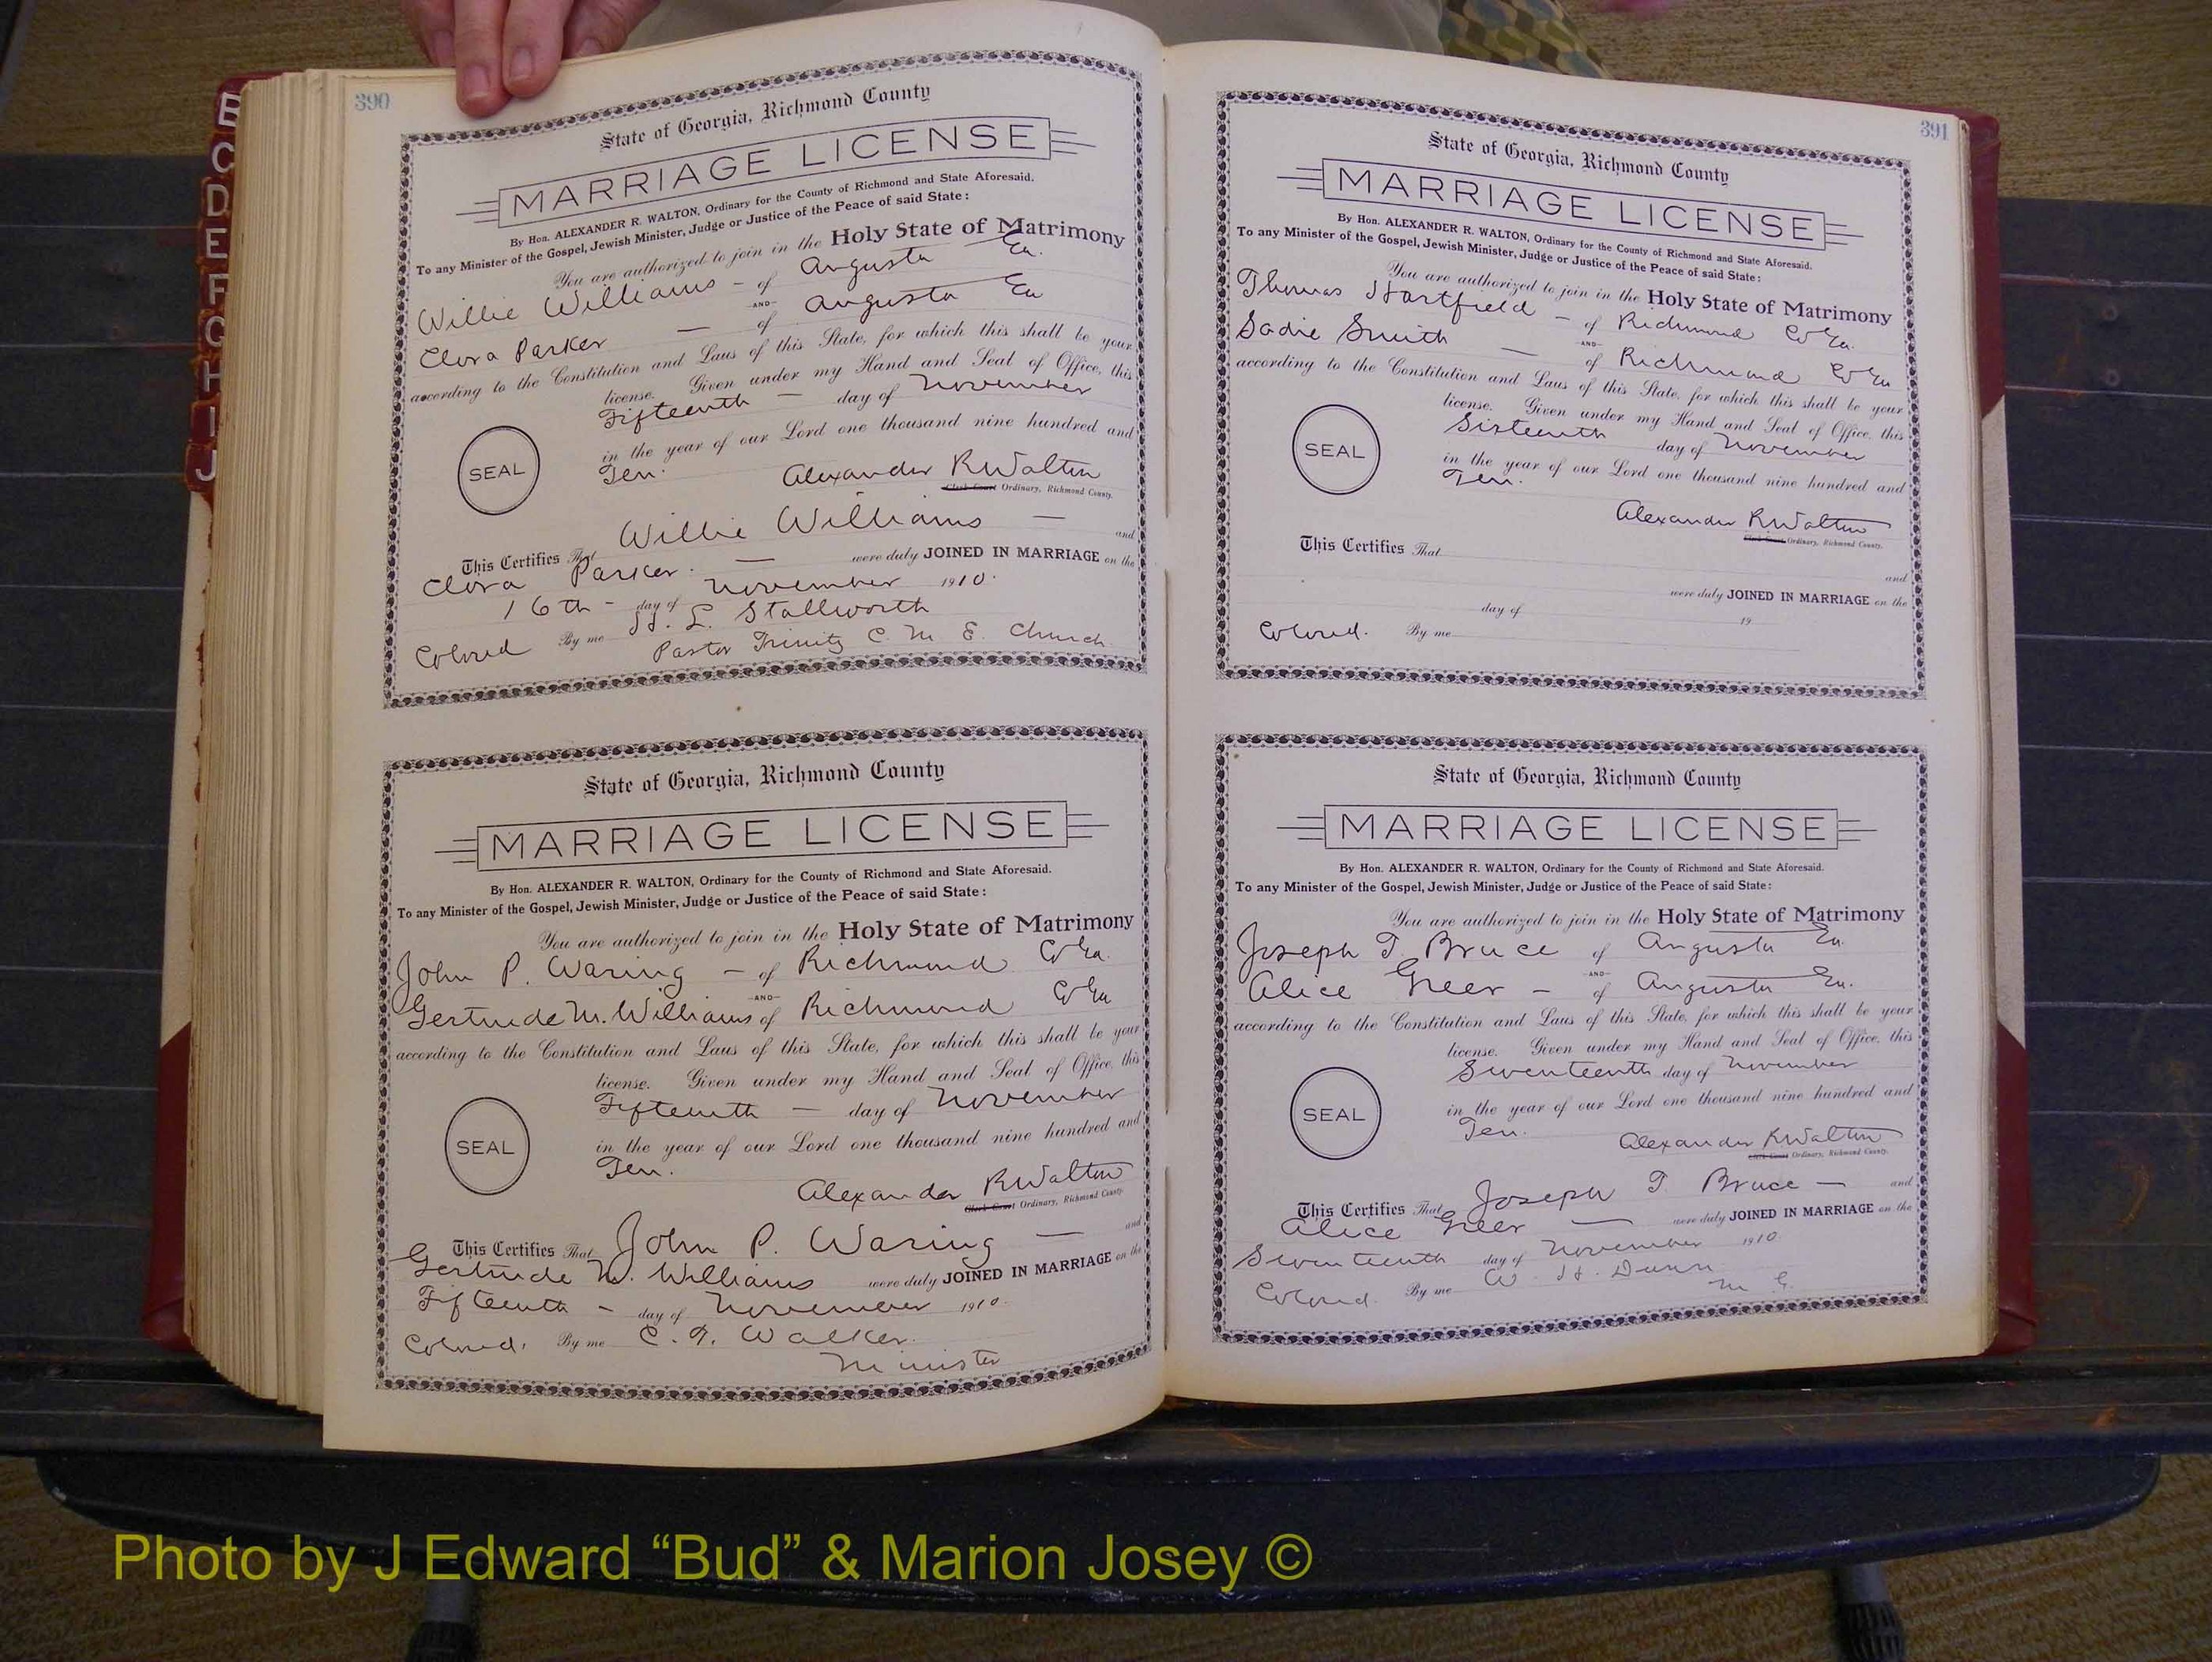 390
State of Georgia, Richmond County
MARRIAGE LICENSE
By Hon. ALEXANDER R. WALTON, Ordinary for the County of Richmond and State Aforesaid.
To any Minister of the Gospel, Jewish Minister, Judge or Justice of the Peace of said State:
You are authorized to join in the Holy State of Matrimony
Willie Williams - of Augusta Ga.
-AND-
Clora Parker - of Augusta Ga
according to the Constitution and Laws of this State, for which this shall be your
license. Given under my Hand and Seal of Office, this
Fifteenth - day of November
in the year of our Lord one thousand nine hundred and
Ten.
SEAL
Alexander R Walton
Clerk Court Ordinary, Richmond County.
This Certifies That Willie Williams - and
Clora Parker. - were duly JOINED IN MARRIAGE on the
16th - day of November 1910.
Colored By me H. L. Stallworth
Pastor Trinity C. M E. Church.
State of Georgia, Richmond County
MARRIAGE LICENSE
By Hon. ALEXANDER R. WALTON, Ordinary for the County of Richmond and State Aforesaid.
To any Minister of the Gospel, Jewish Minister, Judge or Justice of the Peace of said State:
You are authorized to join in the Holy State of Matrimony
John P. Waring - of Richmond Co Ga.
-AND-
Gertrude M. Williams of Richmond Co Ga
according to the Constitution and Laws of this State, for which this shall be your
license. Given under my Hand and Seal of Office, this
Fifteenth - day of November
in the year of our Lord one thousand nine hundred and
Ten.
SEAL
Alexander R Walton
Clerk Court Ordinary, Richmond County.
This Certifies That John P. Waring - and
Gertrude M. Williams were duly JOINED IN MARRIAGE on the
Fifteenth - day of November 1910.
Colored. By me C. T. Walker.
Minister
391
State of Georgia, Richmond County
MARRIAGE LICENSE
By Hon. ALEXANDER R. WALTON, Ordinary for the County of Richmond and State Aforesaid.
To any Minister of the Gospel, Jewish Minister, Judge or Justice of the Peace of said State:
You are authorized to join in the Holy State of Matrimony
Thomas Hartfield - of Richmond Co Ga.
-AND-
Sadie Smith - of Richmond Co Ga
according to the Constitution and Laws of this State, for which this shall be your
license. Given under my Hand and Seal of Office, this
Sixteenth day of November
in the year of our Lord one thousand nine hundred and
Ten.
SEAL
Alexander R Walton
Clerk Court Ordinary, Richmond County.
This Certifies That
and
were duly JOINED IN MARRIAGE on the
day of 19
Colored. By me
State of Georgia, Richmond County
MARRIAGE LICENSE
By Hon. ALEXANDER R. WALTON, Ordinary for the County of Richmond and State Aforesaid.
To any Minister of the Gospel, Jewish Minister, Judge or Justice of the Peace of said State:
You are authorized to join in the Holy State of Matrimony
Joseph T Bruce of Augusta Ga.
-AND-
Alice Greer - of Augusta Ga.
according to the Constitution and Laws of this State, for which this shall be your
license. Given under my Hand and Seal of Office, this
Seventeenth day of November
in the year of our Lord one thousand nine hundred and
Ten.
SEAL
Alexander R Walton
Clerk Court Ordinary, Richmond County.
This Certifies That Joseph T. Bruce - and
Alice Greer - were duly JOINED IN MARRIAGE on the
Seventeenth day of November 1910
Colored. By me W. H. Dunn
M G.
B
C
D
E
F
G
H
I
J
Photo by J Edward “Bud” & Marion Josey ©